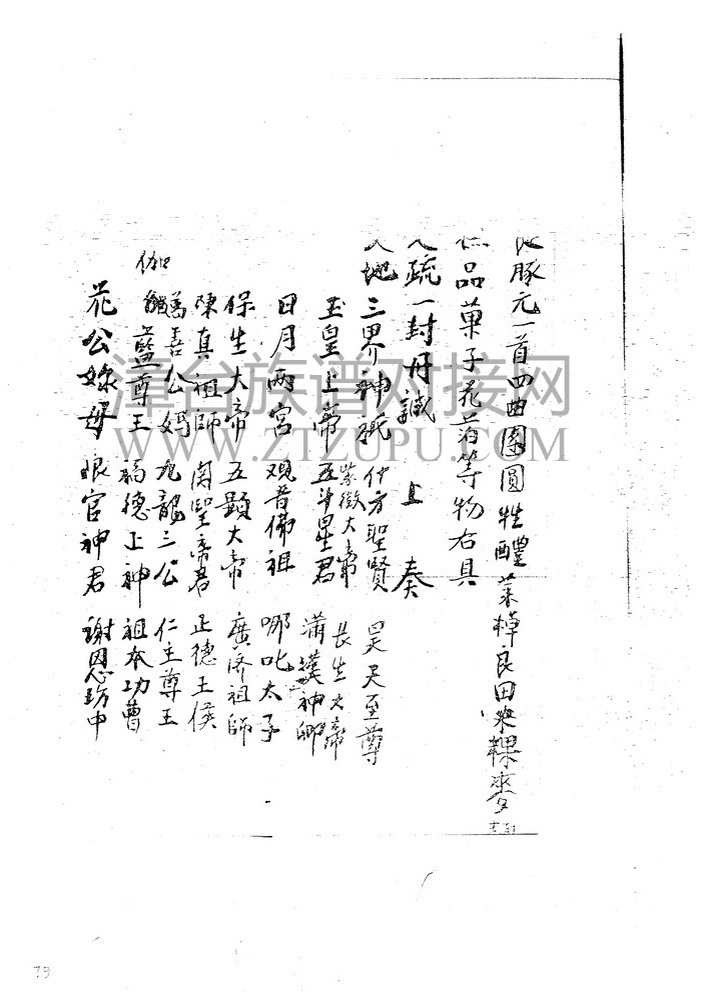 豚元一首四曲團圓牲醴菜棹良田米粿麥
品菓子花等物右具
疏一封丹誠上奏
地三界神祇 十方聖賢 昊天至尊
紫微大帝 長生大帝
玉皇上帝 五斗星君 神
日月兩宮 观音佛祖 哪叱太子
保生大帝 五顯大帝 廣济祖師
陳真祖師 関聖帝君 正德王侯
善公媽 九龍三公 仁主尊王
伽藍尊王 福德正神 祖本功曹
花公婆母 眼官神君 謝恩功中
漳台族谱对接网
WWW.ZTZUPU.COM
79